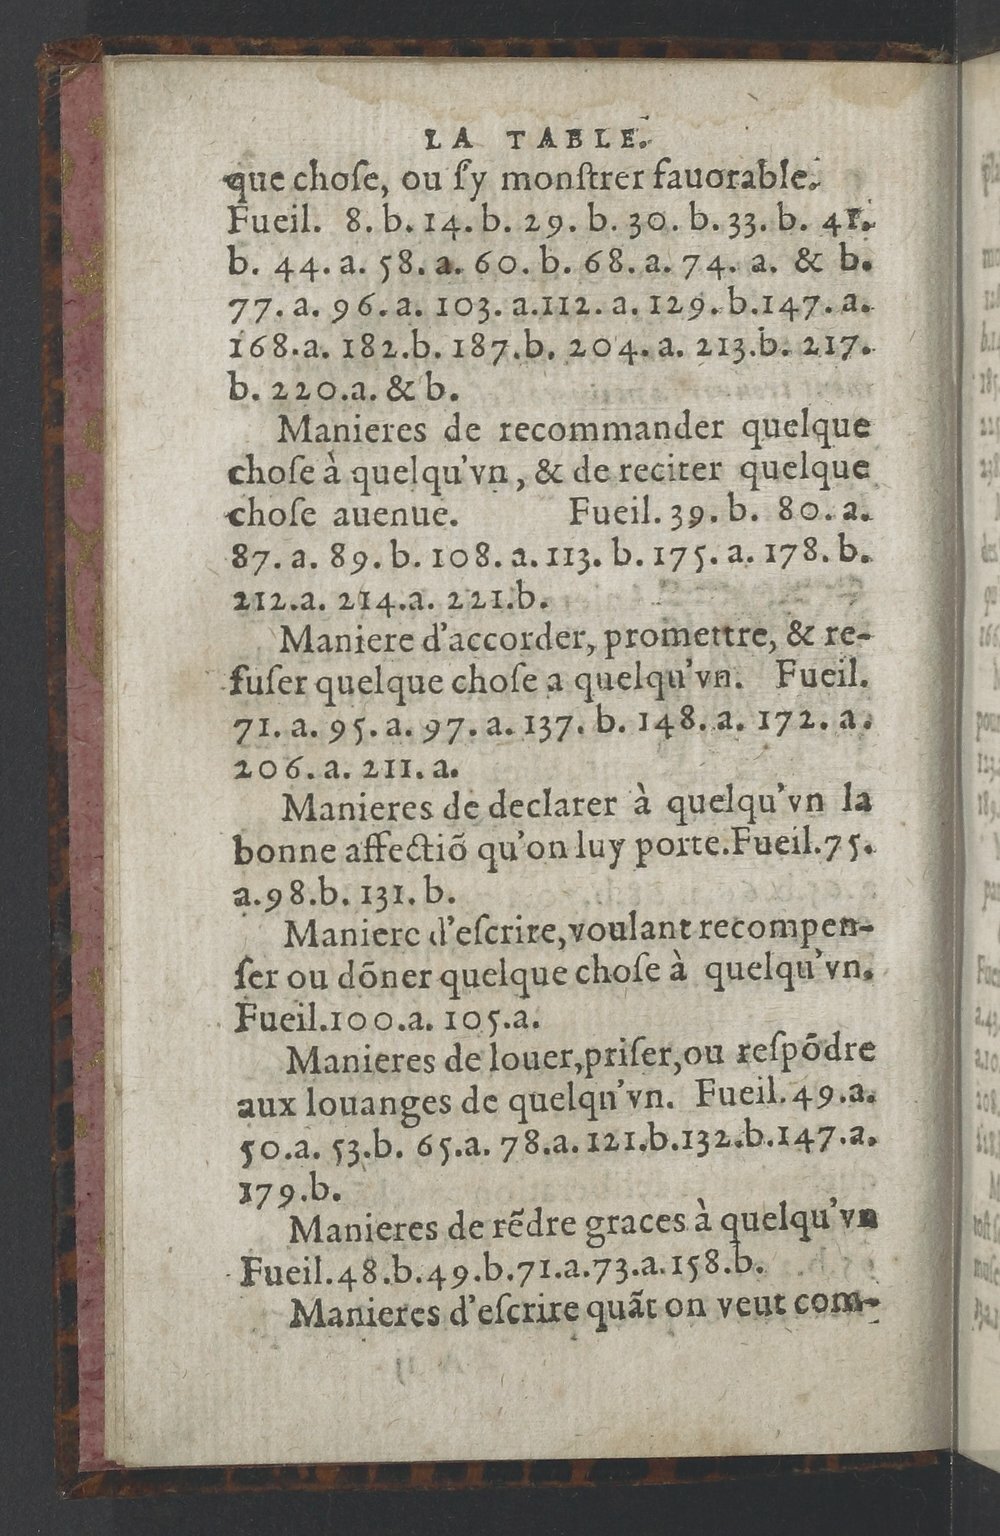 LA TABLE.
que choſe, ou ſ'y monſtrer fauorable.
Fueil. 8. b. 14. b. 29. b. 30. b. 33. b. 41.
b. 44. a. 58. a. 60. b. 68. a. 74. a. & b.
77. a. 96. a. 103. a. 112. a. 129. b. 147. a.
168. a. 182. b. 187. b. 204. a. 213. b. 217.
b. 220. a. & b.
Manieres de recommander quelque
choſe à quelqu'vn, & de reciter quelque
choſe auenue. Fueil. 39. b. 80. a.
87. a. 89. b. 108. a. 113. b. 175. a. 178. b.
212. a. 214. a. 221. b.
Maniere d'accorder, promettre, & re-
fuſer quelque choſe a quelqu'vn. Fueil.
71. a. 95. a. 97. a. 137. b. 148. a. 172. a.
206. a. 211. a.
Manieres de declarer à quelqu'vn la
bonne affectiõ qu'on luy porte. Fueil. 75.
a. 98. b. 131. b.
Maniere d'eſcrire, voulant recompen-
ſer ou dõner quelque choſe à quelqu'vn.
Fueil. 100. a. 105. a.
Manieres de louer, priſer, ou reſpõdre
aux louanges de quelqu'vn. Fueil. 49. a.
50. a. 53. b. 65. a. 78. a. 121. b. 132. b. 147. a.
179. b.
Manieres de rẽdre graces à quelqu'vn
Fueil. 48. b. 49. b. 71. a. 73. a. 158. b.
Manieres d'eſcrire quãt on veut com-